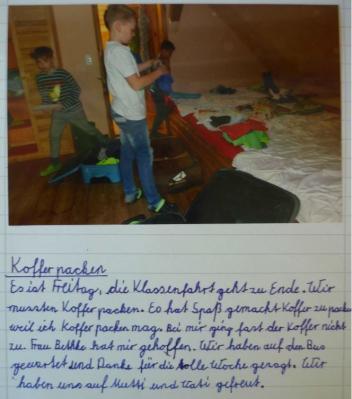 Koffer packen
Es ist Freitag, die Klassenfahrt geht zu Ende. Wir
mussten Koffer packen. Es hat Spaß gemacht Koffer zu packen
weil ich Koffer packen mag. Bei mir ging fast der Koffer nicht
zu. Frau Bethke hat mir geholfen. Wir haben auf den Bus
gewartet und Danke für die tolle Woche gesagt. Wir
haben uns auf Mutti und Vati gefreut.